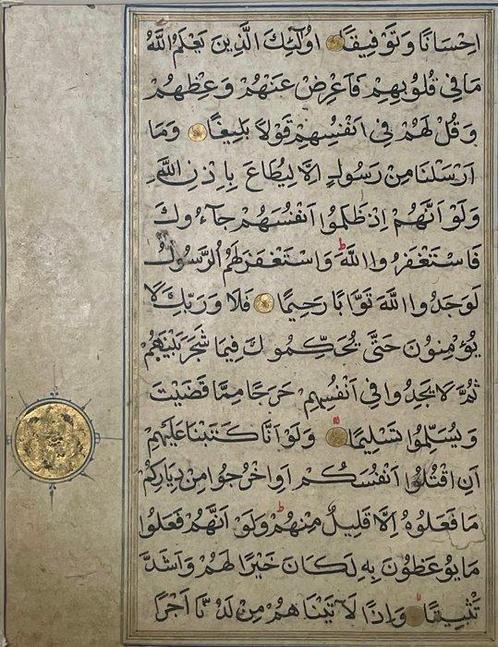 اِحْسَانًا وَتَوْفِيقًا اُولٰئِكَ الَّذِينَ يَعْلَمُ اللّٰهُ
مَا فِي قُلُوبِهِمْ فَاَعْرِضْ عَنْهُمْ وَعِظْهُمْ
وَقُلْ لَهُمْ فِي اَنْفُسِهِمْ قَوْلًا بَلِيغًا وَمَا
اَرْسَلْنَا مِنْ رَسُولٍ اِلَّا لِيُطَاعَ بِاِذْنِ اللّٰهِ
وَلَوْ اَنَّهُمْ اِذْ ظَلَمُوا اَنْفُسَهُمْ جَآءُوكَ
فَاسْتَغْفَرُوا اللّٰهَ وَاسْتَغْفَرَ لَهُمُ الرَّسُولُ
لَوَجَدُوا اللّٰهَ تَوَّابًا رَحِيمًا فَلَا وَرَبِّكَ لَا
يُؤْمِنُونَ حَتَّى يُحَكِّمُوكَ فِيمَا شَجَرَ بَيْنَهُمْ
ثُمَّ لَا يَجِدُوا فِي اَنْفُسِهِمْ حَرَجًا مِمَّا قَضَيْتَ
وَيُسَلِّمُوا تَسْلِيمًا وَلَوْ اَنَّا كَتَبْنَا عَلَيْهِمْ
اَنِ اقْتُلُوا اَنْفُسَكُمْ اَوِ اخْرُجُوا مِنْ دِيَارِكُمْ
مَا فَعَلُوهُ اِلَّا قَلِيلٌ مِنْهُمْ وَلَوْ اَنَّهُمْ فَعَلُوا
مَا يُوعَظُونَ بِهِ لَكَانَ خَيْرًا لَهُمْ وَاَشَدَّ
تَثْبِيتًا وَاِذًا لَآتَيْنَاهُمْ مِنْ لَدُنَّا اَجْرًا